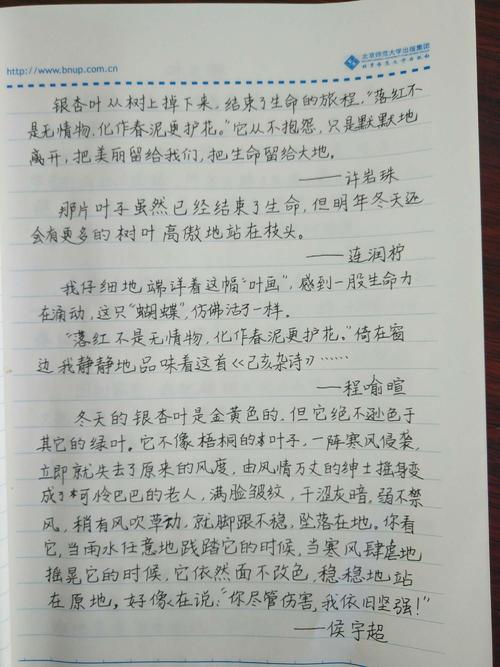 北京师范大学出版集团
http://www.bnup.com.cn
银杏叶从树上掉下来,结束了生命的旅程,“落红不
是无情物,化作春泥更护花。”它从不抱怨,只是默默地
离开,把美丽留给我们,把生命留给大地。
——许岩珠
那片叶子虽然已经结束了生命,但明年冬天还
会有更多的树叶高傲地站在枝头。
——连润柠
我仔细地端详着这幅“叶画”,感到一股生命力
在涌动,这只“蝴蝶”,仿佛活了一样。
“落红不是无情物,化作春泥更护花。”倚在窗
边我静静地品味着这首《己亥杂诗》……
——程喻暄
冬天的银杏叶是金黄色的,但它绝不逊色于
其它的绿叶。它不像梧桐的叶子,一阵寒风侵袭,
立即就失去了原来的风度,由风情万丈的绅士摇身变
成了可怜巴巴的老人,满脸皱纹,干涩灰暗,弱不禁
风,稍有风吹草动,就脚跟不稳,坠落在地。你看
它,当雨水任意地践踏它的时候,当寒风肆虐地
摇晃它的时候,它依然面不改色,稳稳地站
在原地。好像在说:“你尽管伤害,我依旧坚强!”
——侯宇超